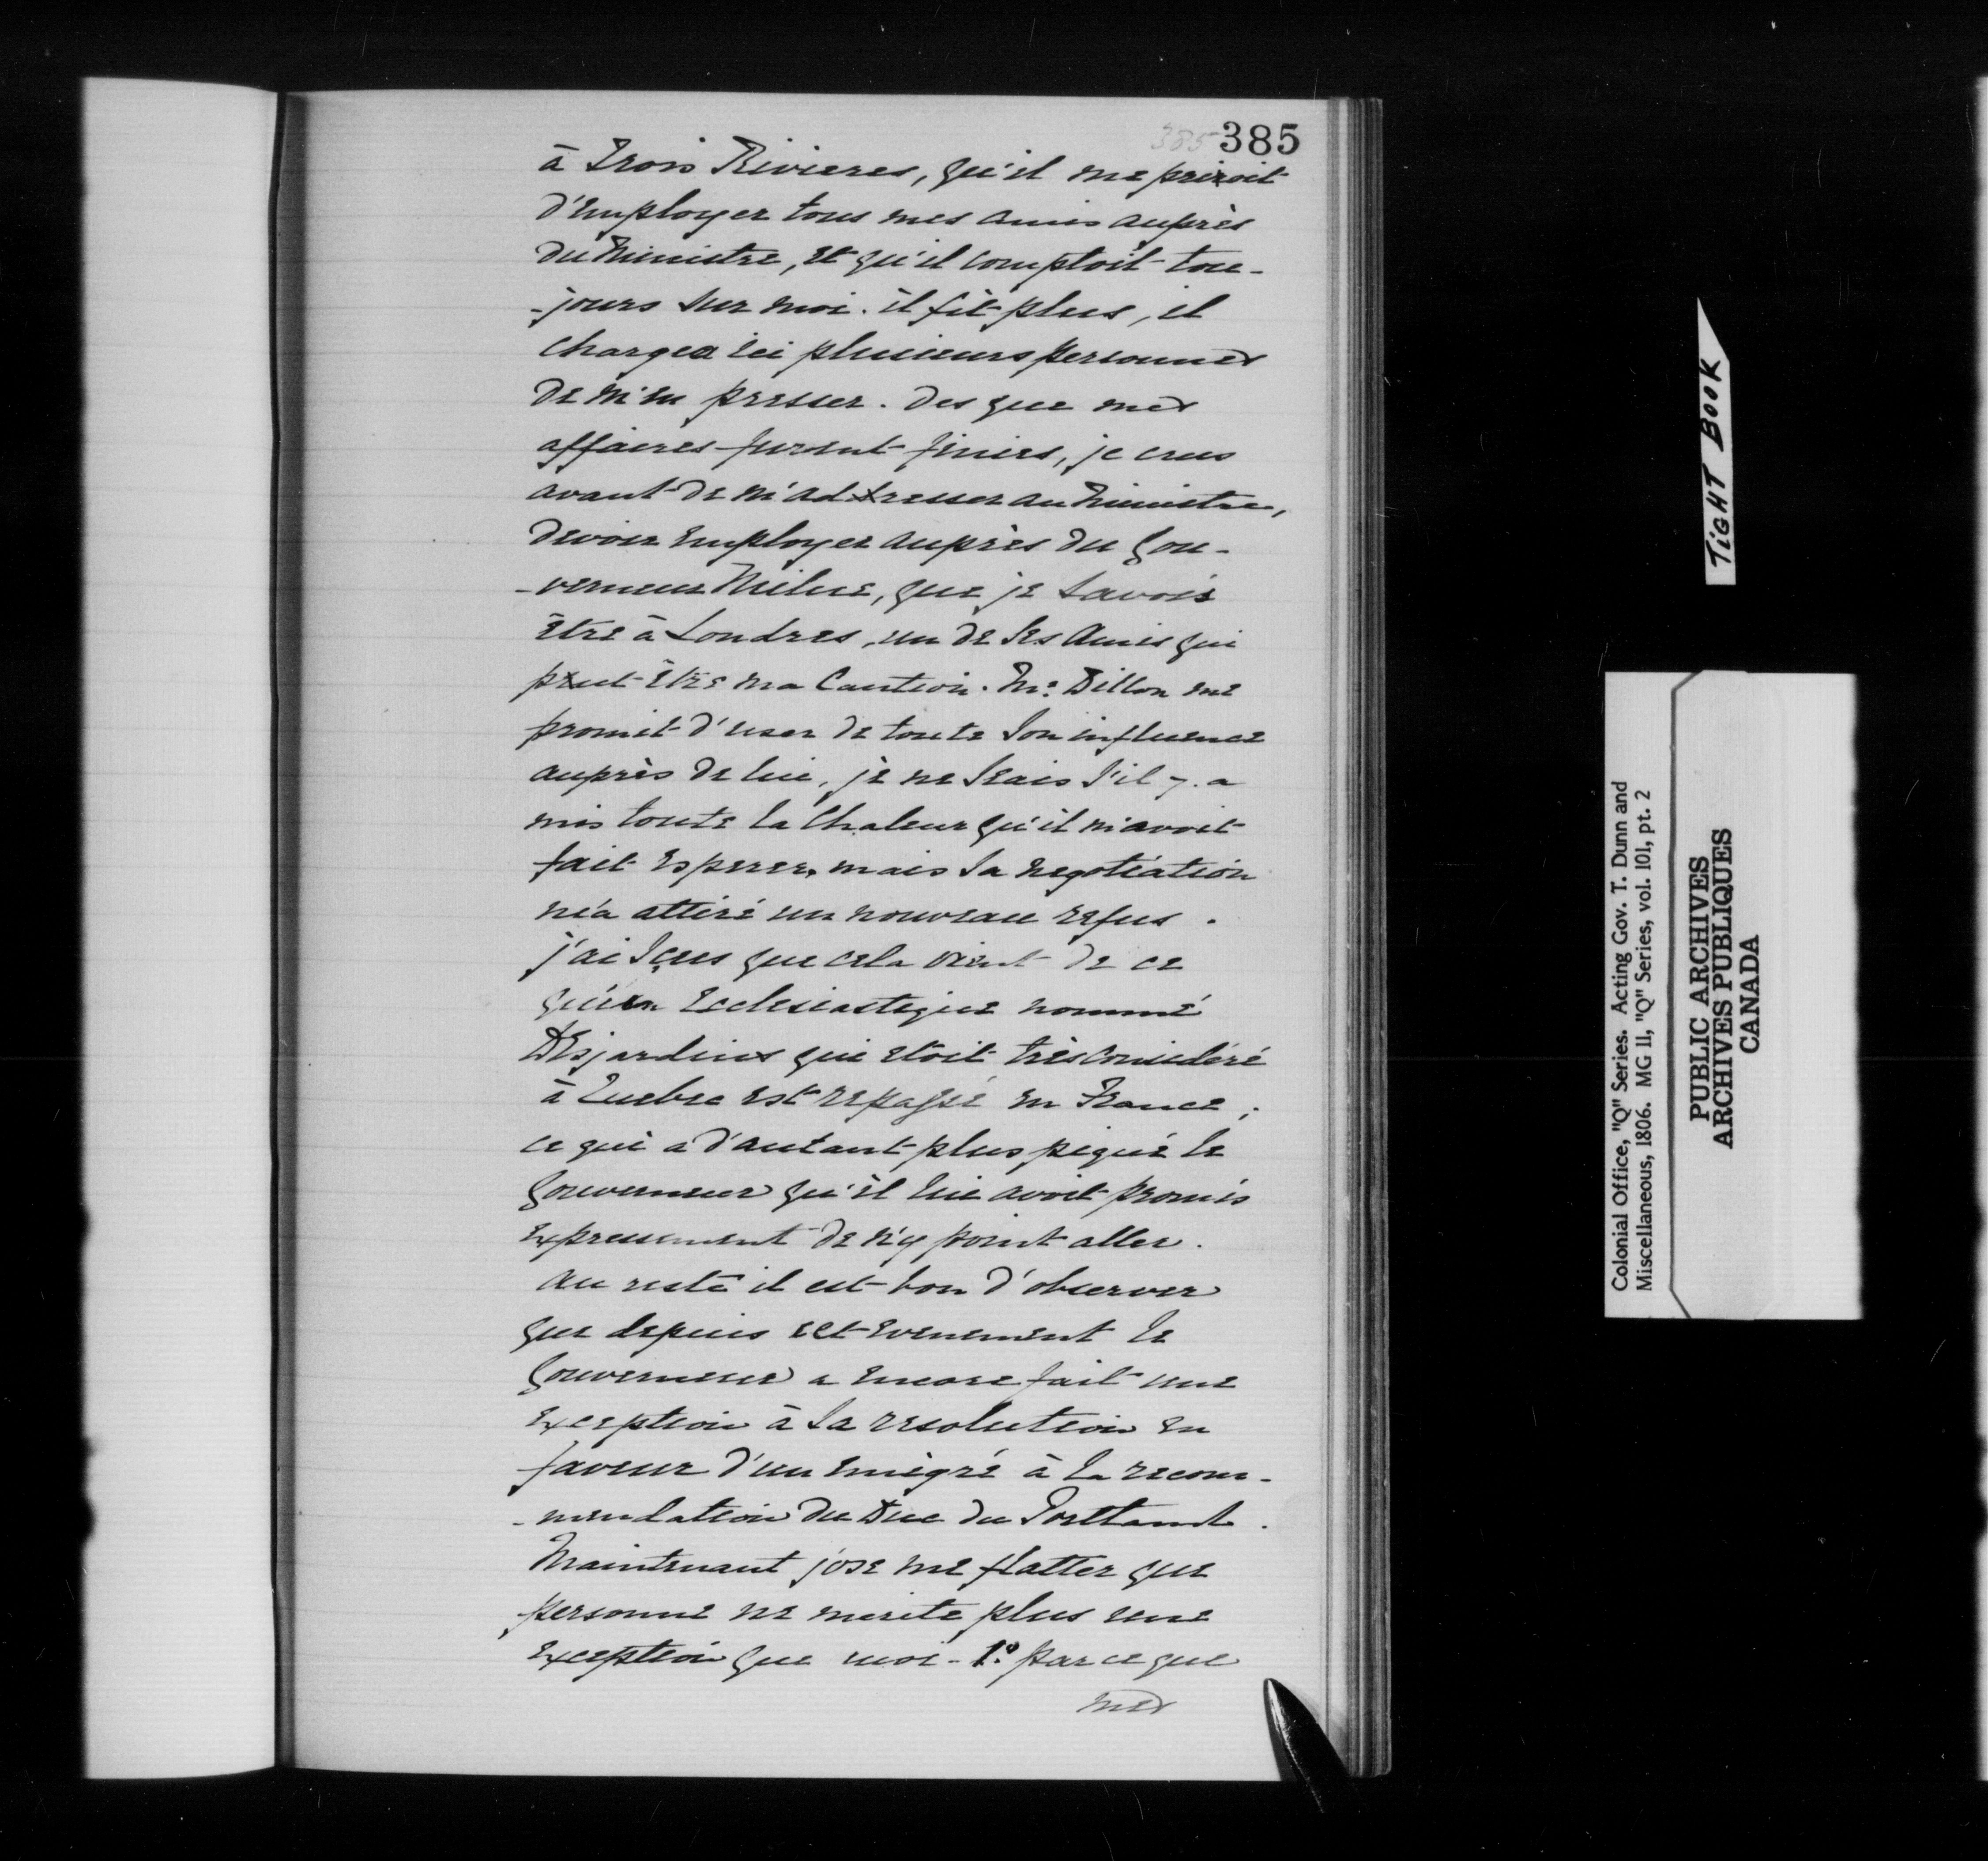 385 385
à Trois Rivieres, qu'il me prioit
d'employer tous mes amis auprès
du Ministre, et qu'il comptoit tou-
-jours sur moi. il fit plus, il
chargea ici plusieurs personnes
de m'en presser. des que mes
affaires furent finies, je crus
avant de m'adresser au Ministre,
devoir employer auprès du Gou-
-verneur Milne, que je savois
être à Londres, un de ses amis qui
peut être ma Caution. Mr. Dillon me
promit d'user de toute son influence
auprès de lui, je ne sçais s'il y a
mis toute la chaleur qu'il m'avoit
fait esperer, mais sa negotiation
m'a attiré un nouveau refus.
j'ai sçus que cela vient de ce
qu'un Ecclesiastique nommé
Desjardins qui etoit très consideré
à Quebec est repassé en France;
ce qui a d'autant plus piqué le
Gouverneur qu'il lui avoit promis
expressement de n'y point aller.
au reste il est bon d'observer
que depuis cet evenement le
Gouverneur a encore fait une
exception à sa resolution en
faveur d'un emigré à la recom-
-mendation du Duc du Portland.
Maintenant j'ose me flatter que
personne ne merite plus une
exception que moi - 1º. parceque
mes
TIGHT BOOK
Colonial Office, "Q" Series. Acting Gov. T. Dunn and
Miscellaneous, 1806. MG 11, "Q" Series, vol. 101, pt. 2
PUBLIC ARCHIVES
ARCHIVES PUBLIQUES
CANADA